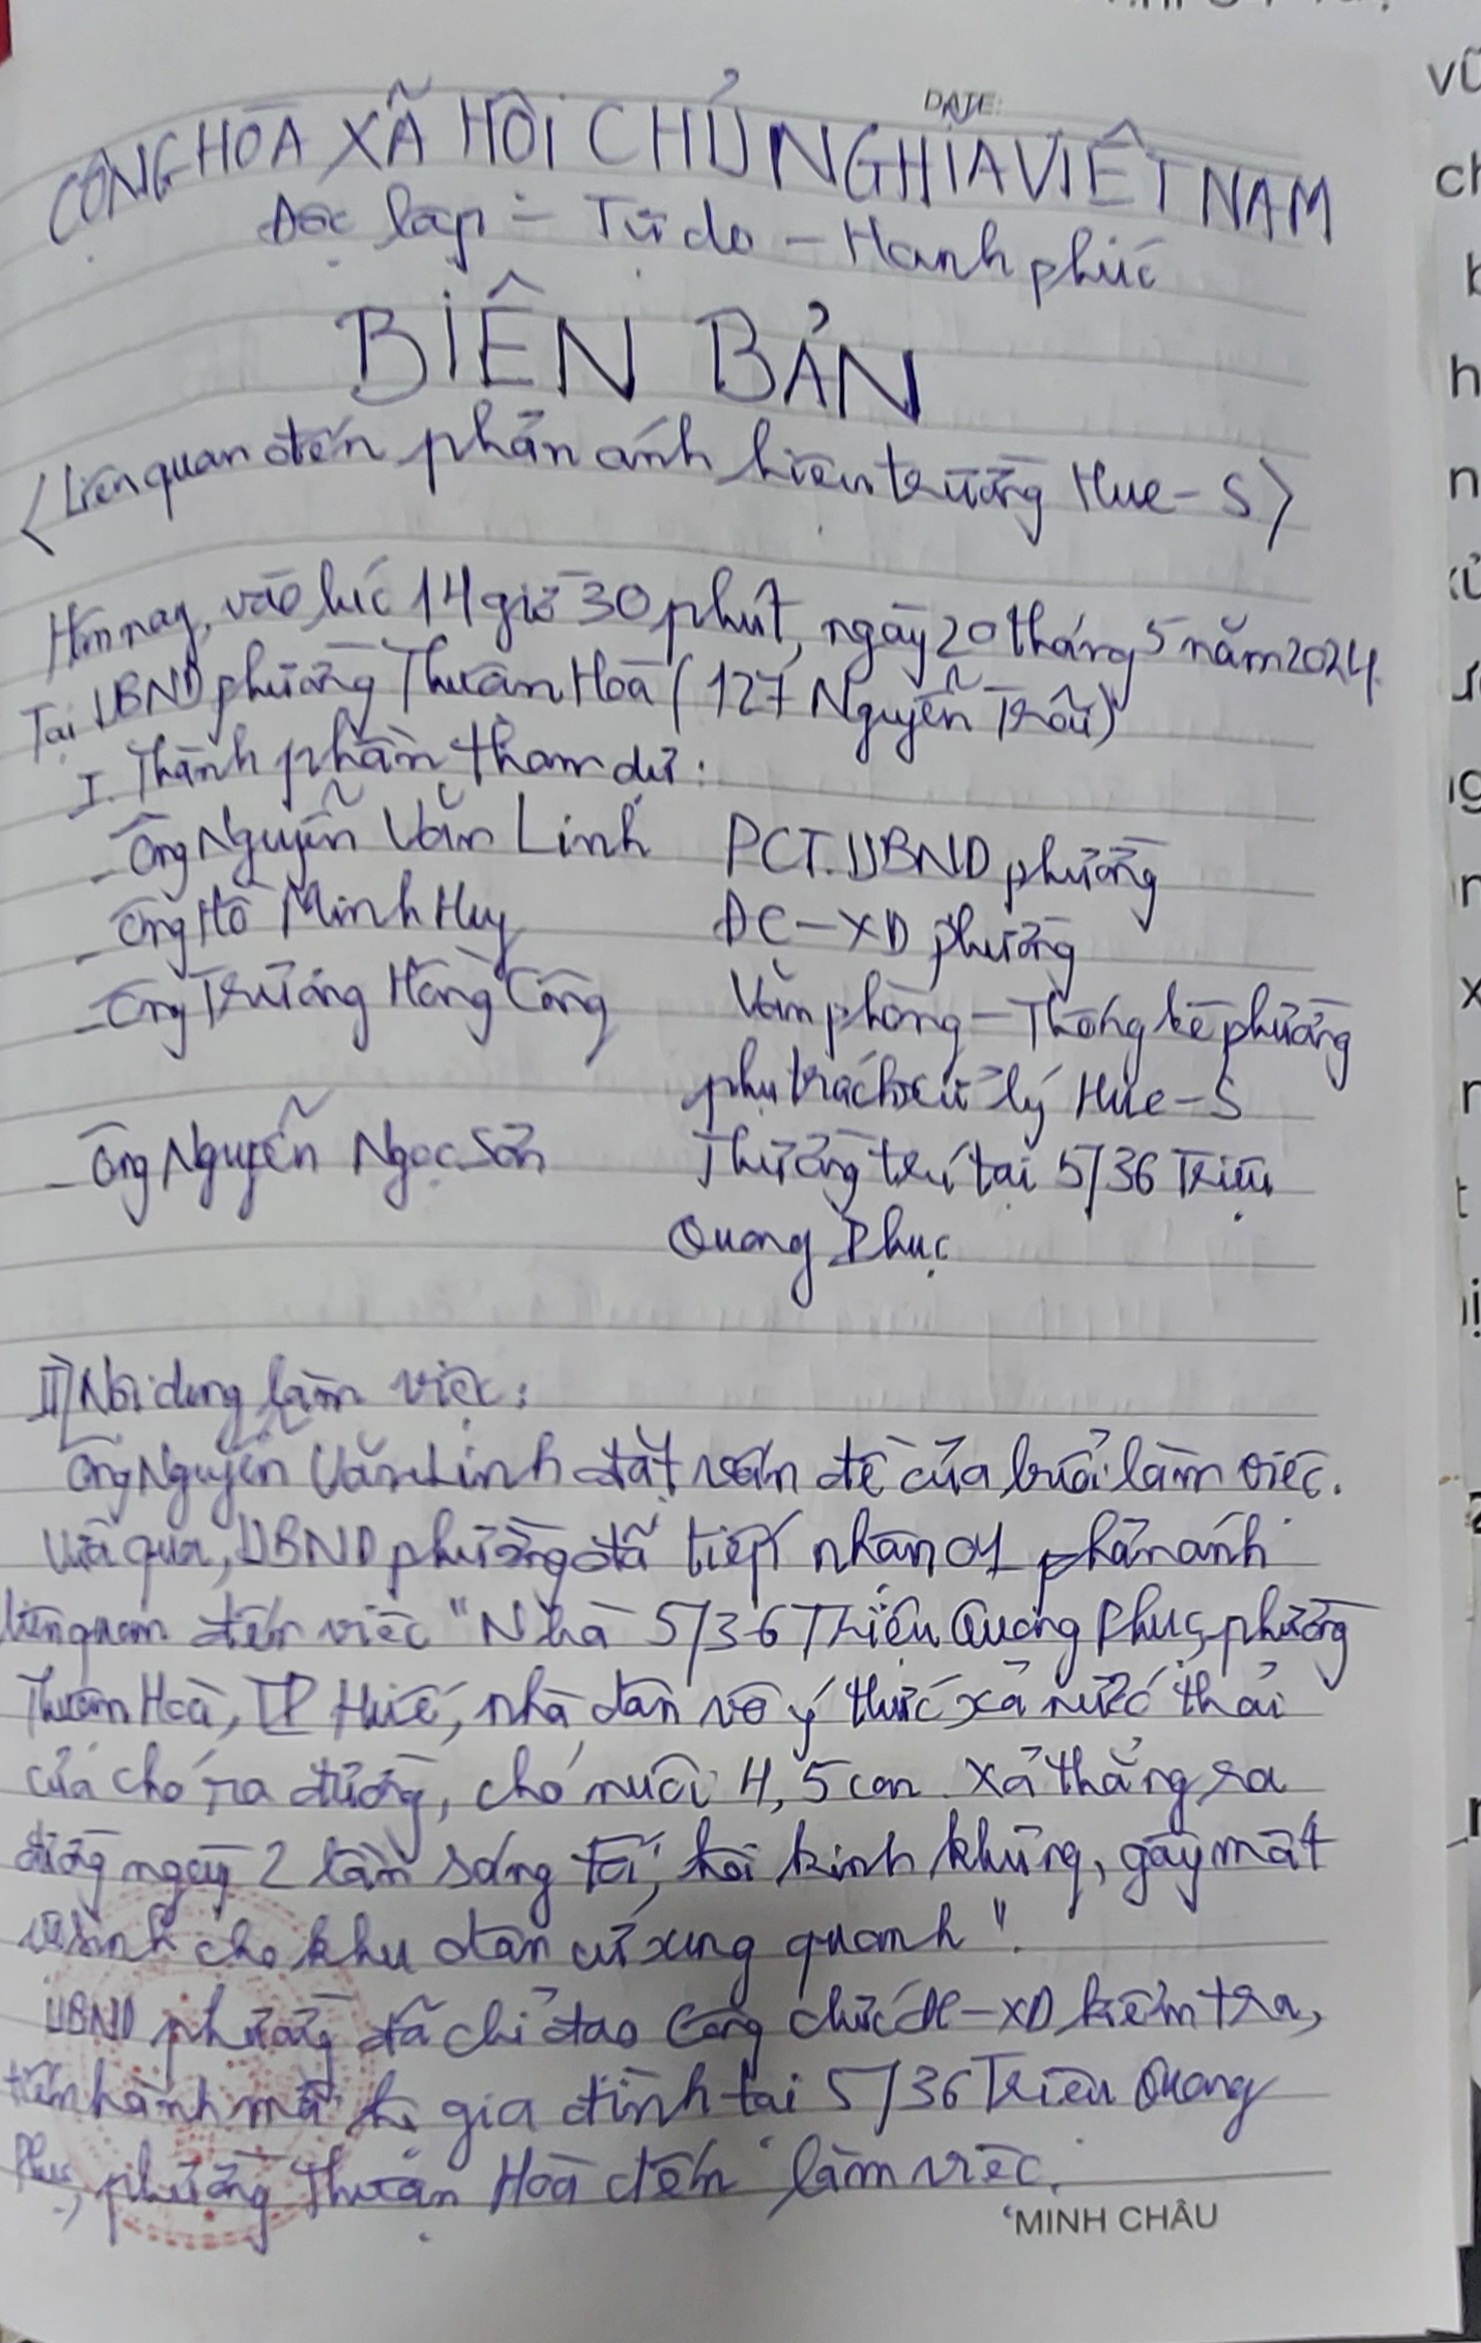 DATE:
CỘNG HÒA XÃ HỘI CHỦ NGHĨA VIỆT NAM
Độc lập - Tự do - Hạnh phúc
BIÊN BẢN
<Liên quan đến phản ánh hiện trường Hue-S>
Hôm nay, vào lúc 14 giờ 30 phút, ngày 20 tháng 5 năm 2024.
Tại UBND phường Thuận Hòa (127 Nguyễn Trãi)
I. Thành phần tham dự:
- Ông Nguyễn Văn Linh PCT.UBND phường
- Ông Hồ Minh Huy ĐC-XD phường
- Ông Trương Hồng Công Văn phòng - Thống kê phường
phụ trách xử lý Hue-S
- Ông Nguyễn Ngọc Sơn Thường trú tại 5/36 Triệu
Quang Phục
II/ Nội dung làm việc:
Ông Nguyễn Văn Linh đặt vấn đề của buổi làm việc.
Vừa qua, UBND phường đã tiếp nhận 01 phản ánh
liên quan đến việc "Nhà 5/36 Triệu Quang Phục, phường
Thuận Hoà, TP Huế, nhà dân vô ý thức xả nước thải
của chó ra đường, chó nuôi 4, 5 con. Xả thẳng ra
đường ngày 2 lần sáng tối, hôi kinh khủng, gây mất
vệ sinh cho khu dân cư xung quanh".
UBND phường đã chỉ đạo Công chức ĐC-XD kiểm tra,
tiến hành mời hộ gia đình tại 5/36 Triệu Quang
Phục, phường Thuận Hoà đến làm việc.
MINH CHÂU